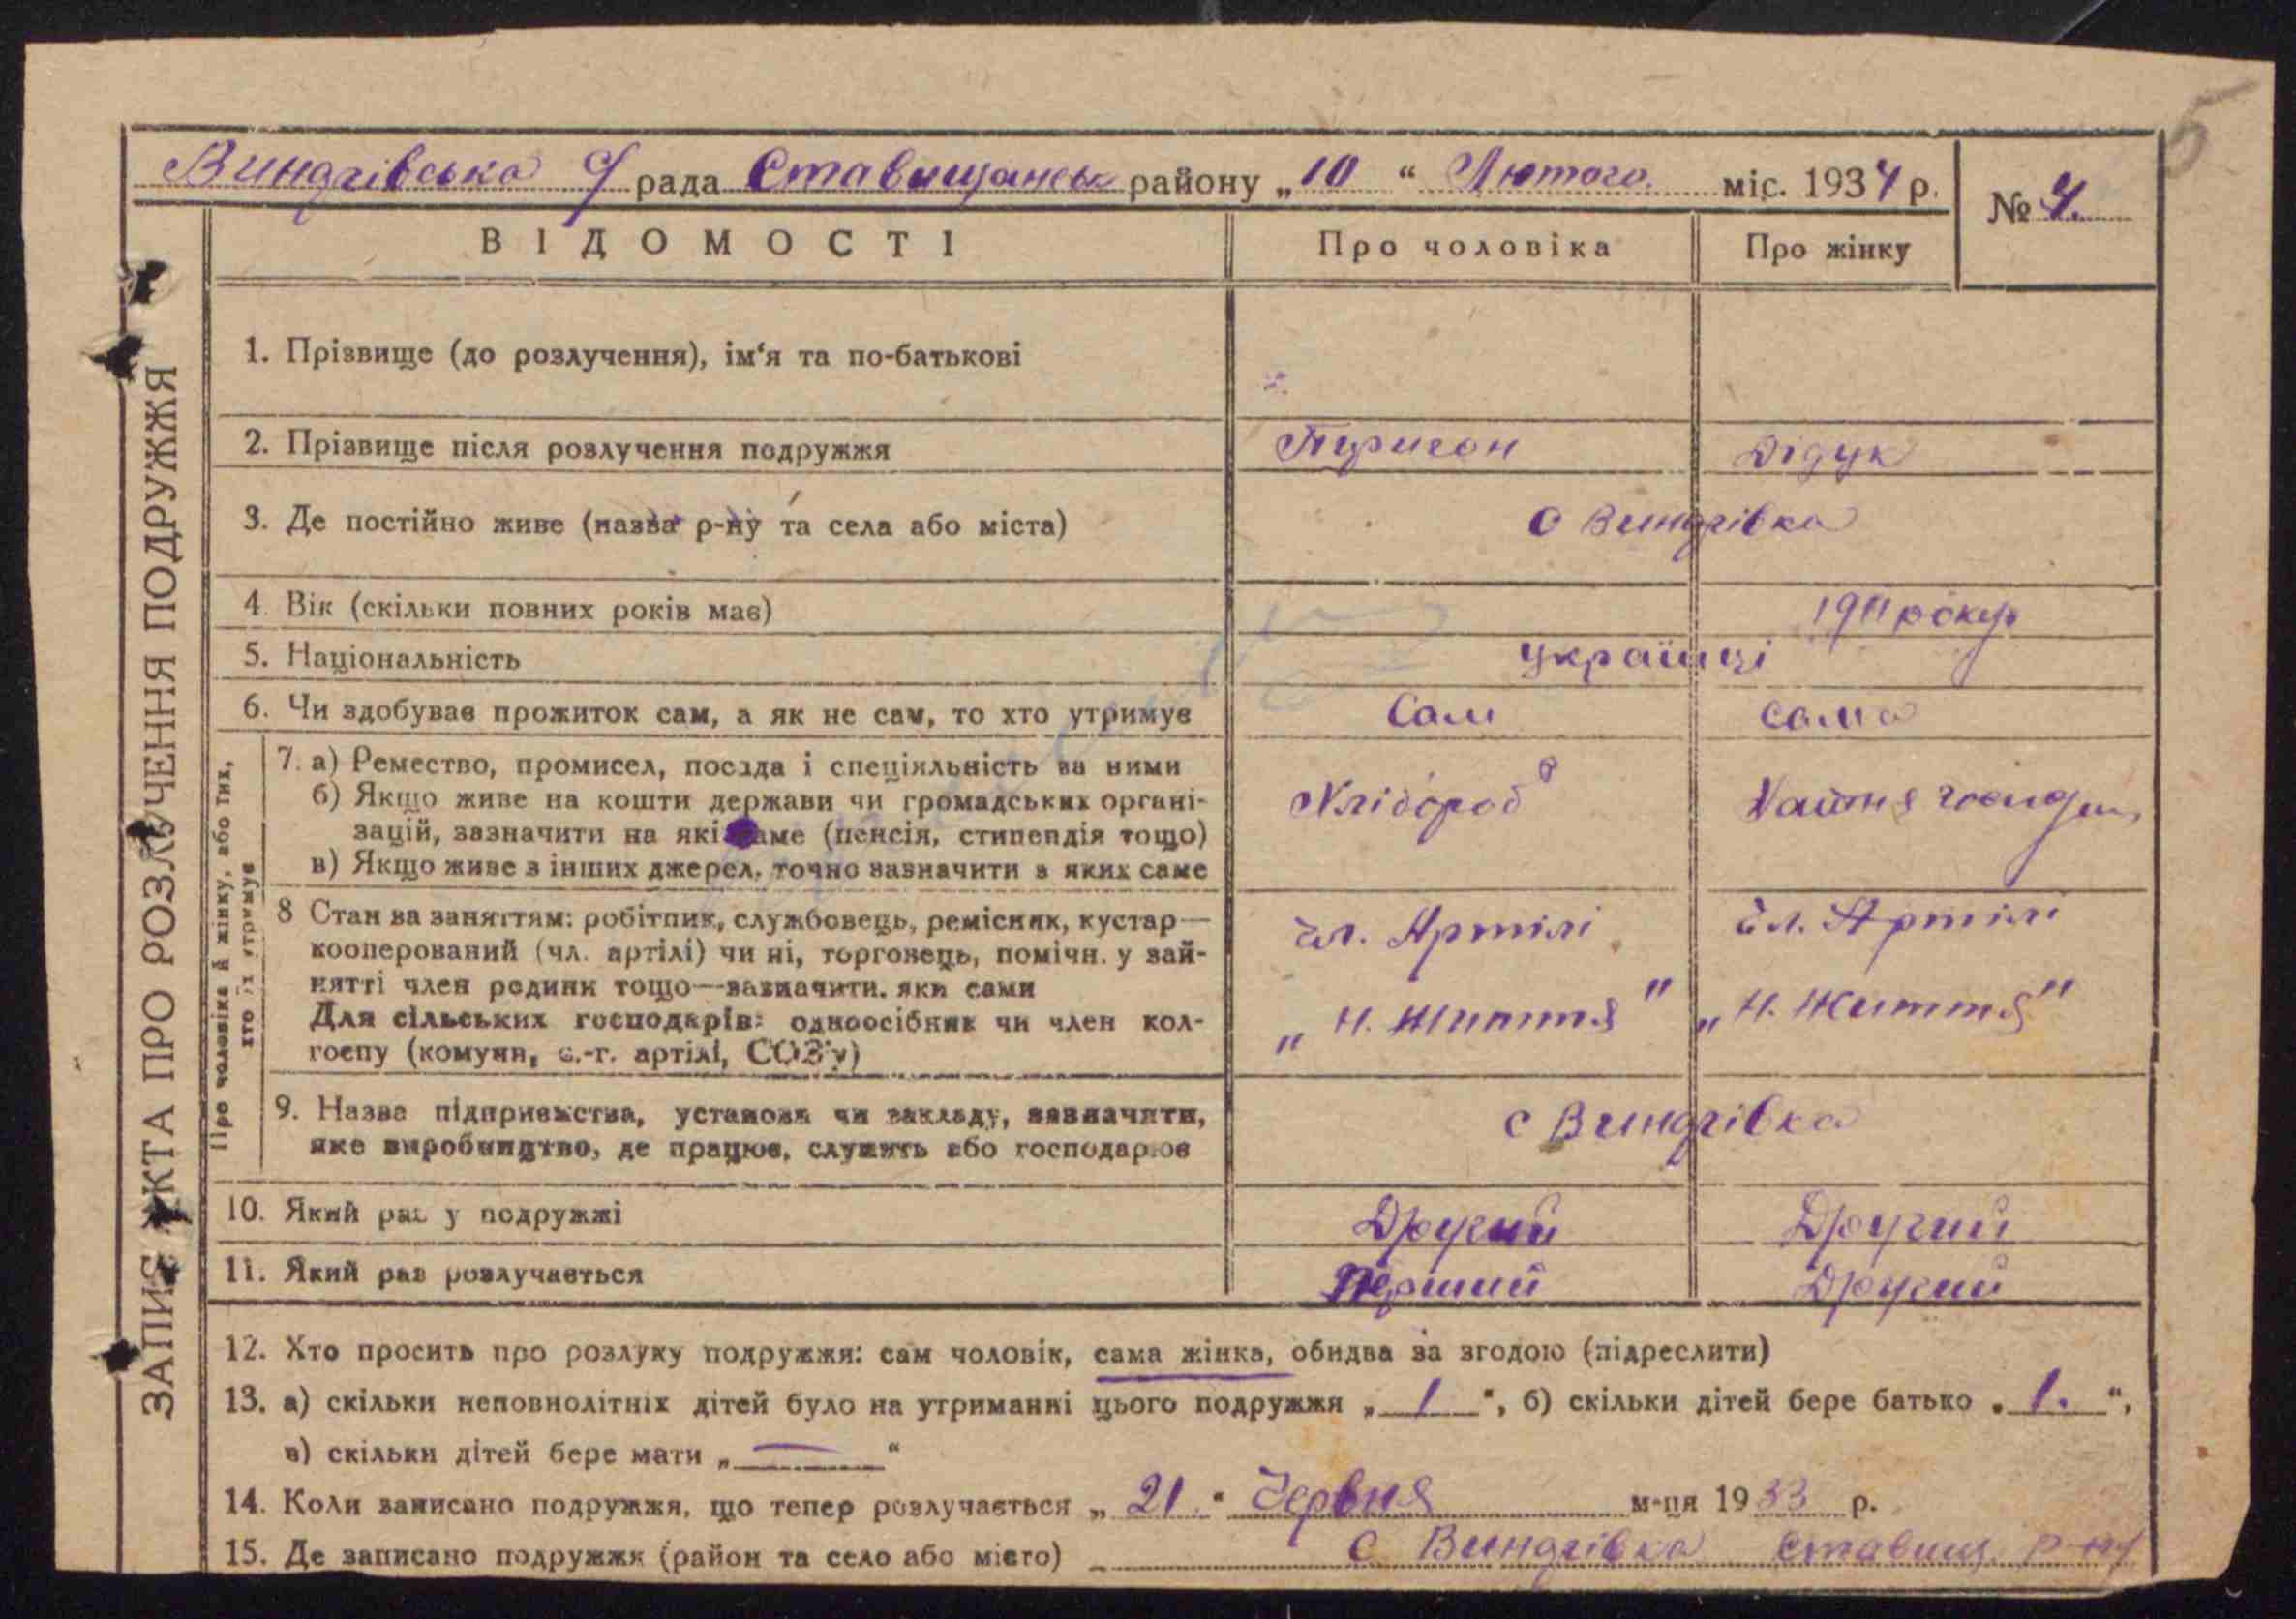 5
Виндгівська с/рада Ставищанськ району „10“ Лютого міс. 1934 р.
№ 4.
ВІДОМОСТІ Про чоловіка Про жінку
ЗАПИС АКТА ПРО РОЗЛУЧЕННЯ ПОДРУЖЖЯ
1. Прізвище (до розлучення), ім‘я та по-батькові
2. Прізвище після розлучення подружжя Перигон Дідук
3. Де постійно живе (назва р-ну та села або міста) с Виндгівка
4. Вік (скільки повних років має) 1911 року
5. Національність українці
6. Чи здобуває прожиток сам, а як не сам, то хто утримує Сам сама
Про чоловіка й жінку, або тих,
хто їх утримує
7. а) Ремество, промисел, посада і спеціяльність за ними
б) Якщо живе на кошти держави чи громадських органі- Хлібороб
зацій, зазначити на які саме (пенсія, стипендія тощо)
в) Якщо живе з інших джерел, точно зазначити з яких саме
8 Стан за заняттям: робітник, службовець, ремісник, кустар— чл. Артілі чл. Артілі
кооперований (чл. артілі) чи ні, торговець, помічн. у зай-
нятті член родини тощо—зазначити, яки сами
Для сільських господарів: одноосібник чи член кол- „Н. Життя" „Н. Життя"
госпу (комуни, с.-г. артілі, СОЗ'у)
9. Назва підприємства, установи чи закладу, зазначити, с Виндгівка
яке виробництво, де працює, служить або господарює
10. Який раз у подружжі Другий Другий
11. Який раз розлучається Перший Другий
12. Хто просить про розлуку подружжя: сам чоловік, сама жінка, обидва за згодою (підреслити)
13. а) скільки неповнолітніх дітей було на утриманні цього подружжя „ 1 “, б) скільки дітей бере батько „ 1. “,
в) скільки дітей бере мати „ — “
14. Коли записано подружжя, що тепер розлучається „ 21 “ Червня м-ця 1933 р.
15. Де записано подружжя (район та село або місто) с Виндгівка Ставищ. р-ну